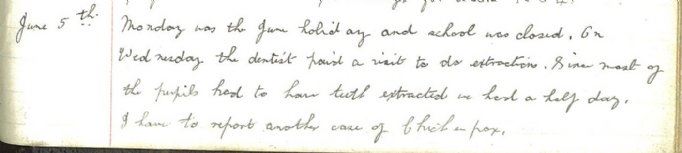 June 5th. Monday was the June holiday and school was closed. On
Wednesday the dentist paid a visit to do extraction. Since most of
the pupils had to have teeth extracted we had a half day.
I have to report another case of Chicken pox.